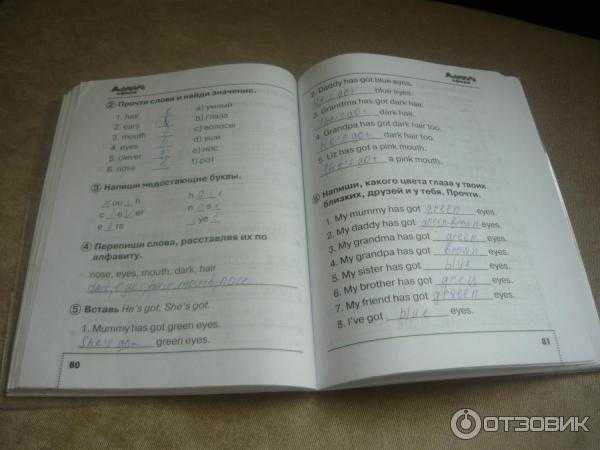 ② Прочти слова и найди значение.
1. hair
a) умный
2. ears
b) глаза
3. mouth
c) волосы
4. eyes
d) уши
5. clever
e) нос
6. nose
f) рот
③ Напиши недостающие буквы.
④ Перепиши слова, расставляя их по
алфавиту.
nose, eyes, mouth, dark, hair
⑤ Вставь He's got, She's got.
1. Mummy has got green eyes.
She's got green eyes.
80
2. Daddy has got blue eyes.
He's got blue eyes.
3. Grandma has got dark hair.
She's got dark hair.
4. Grandpa has got dark hair too.
He's got dark hair too.
5. Liz has got a pink mouth.
She's got a pink mouth.
⑥ Напиши, какого цвета глаза у твоих
близких, друзей и у тебя. Прочти.
1. My mummy has got green eyes.
2. My daddy has got green-brown eyes.
3. My grandma has got green eyes.
4. My grandpa has got brown eyes.
5. My sister has got blue eyes.
6. My brother has got green eyes.
7. My friend has got green eyes.
8. I've got blue eyes.
81
ОТЗОВИК